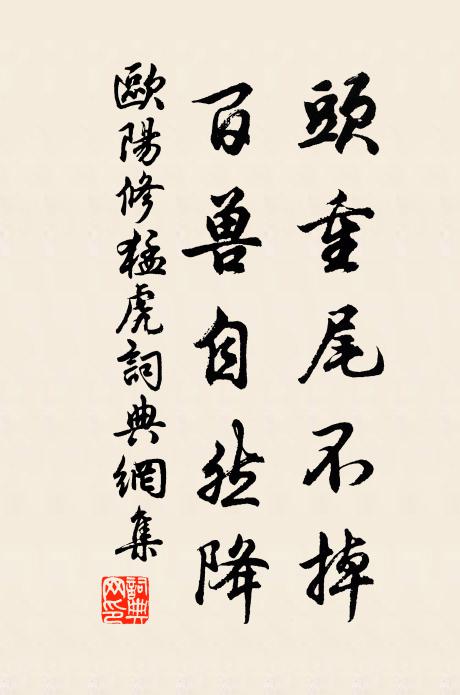 頭重尾不掉
百兽自然降
歐陽修猛虎詞典網集
詞典網印